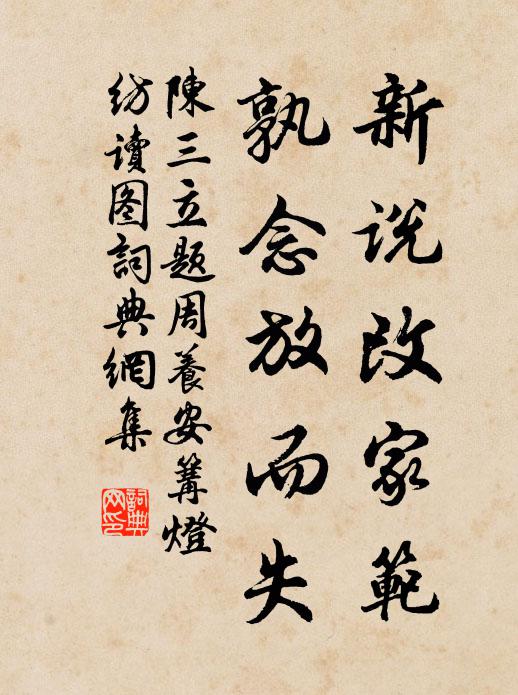 新说改家範
孰念放而失
陳三立題周養安篝燈
纺讀图詞典網集
詞典网印